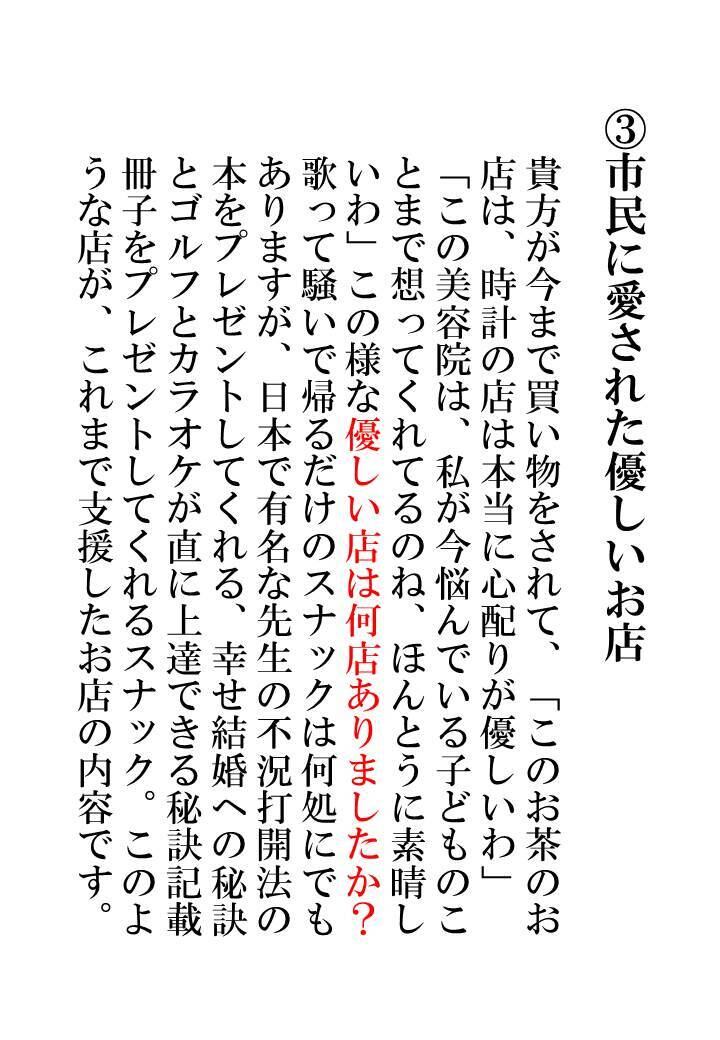 ③市民に愛された優しいお店
貴方が今まで買い物をされて、「このお茶のお
店は、時計の店は本当に心配りが優しいわ」
「この美容院は、私が今悩んでいる子どものこ
とまで想ってくれてるのね、ほんとうに素晴し
いわ」この様な優しい店は何店ありましたか？
歌って騒いで帰るだけのスナックは何処にでも
ありますが、日本で有名な先生の不況打開法の
本をプレゼントしてくれる、幸せ結婚への秘訣
とゴルフとカラオケが直に上達できる秘訣記載
冊子をプレゼントしてくれるスナック。このよ
うな店が、これまで支援したお店の内容です。